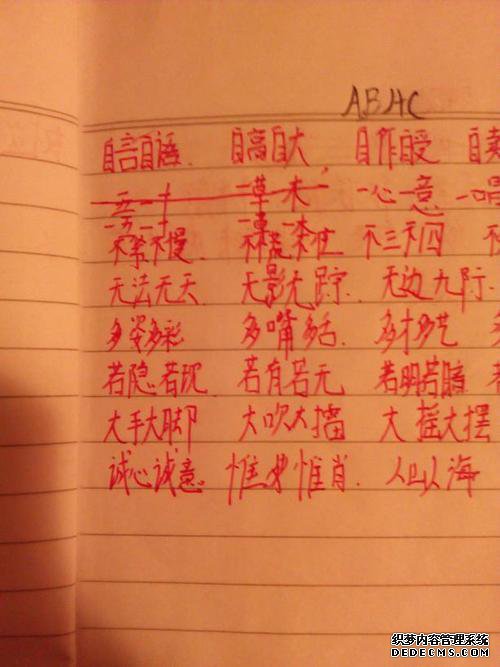 ABAC
自言自语. 自高自大, 自作自受 自卖
一心一意 一唱
一五一十 一草一木
不紧不慢. 不慌不忙 不三不四 不
无法无天 无影无踪. 无边无际.
多姿多彩 多嘴多舌. 多才多艺
若隐若现 若有若无 若明若暗 若
大手大脚 大吹大擂 大摇大摆
诚心诚意 惟妙惟肖. 人山人海
织梦内容管理系统
DEDECMS.COM